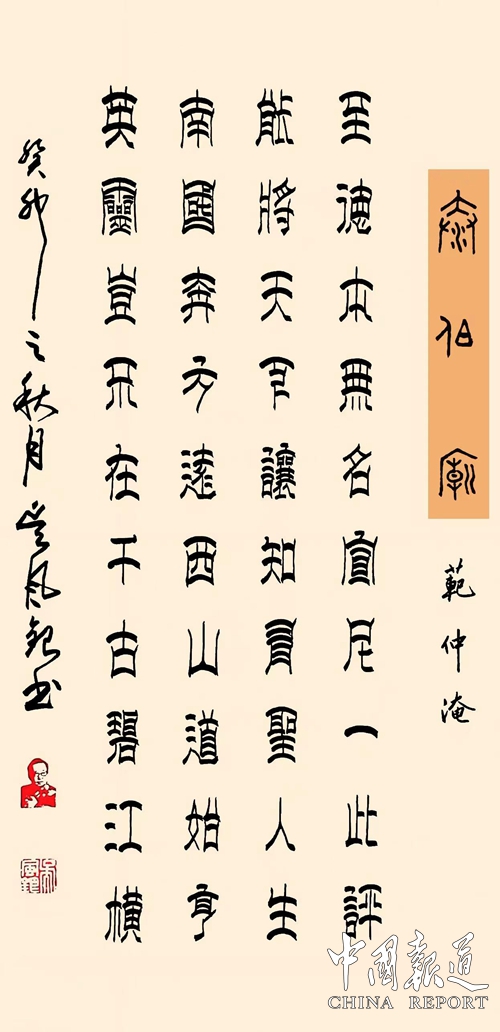 泰伯廟
範仲淹
至德本無名宣尼一此評
能將天下讓知有聖人生
南國奔方遠西山道始亨
英靈豈不在千古碧江橫
癸卯之秋月
中國報道
CHINA REPORT